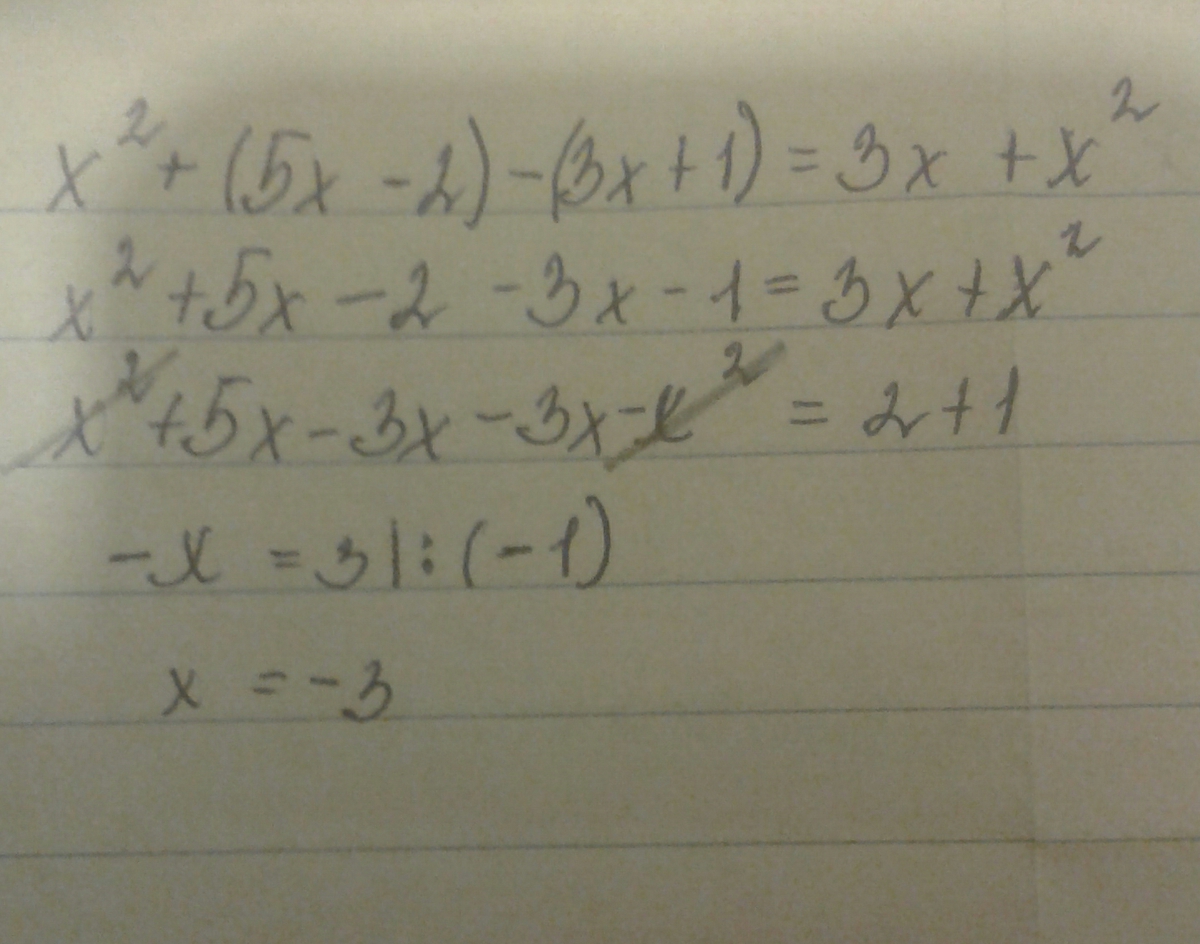 x² + (5x - 2) - (3x + 1) = 3x + x²
x² + 5x - 2 - 3x - 1 = 3x + x²
x² + 5x - 3x - 3x - x² = 2 + 1
-x = 3 | : (-1)
x = -3